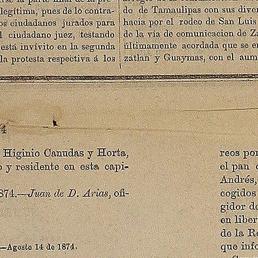 legítima, pues de lo contra-
los ciudadanos jurados para
el ciudadano juez, testando
está invívito en la segunda
la protesta respectiva á los
do de Tamaulipas con sus diver
hacia por el rodeo de San Luis
de la via de comunicacion de Za
últimamente acordada que se en
zatlan y Guaymas, con el aum
4
Higinio Canudas y Horta,
y residente en esta capi-
874.—Juan de D. Arias, ofi-
—Agosto 14 de 1874.
reos por
el pan c
Andrés,
cogidos
gidor de
en liber
de la Re
que info